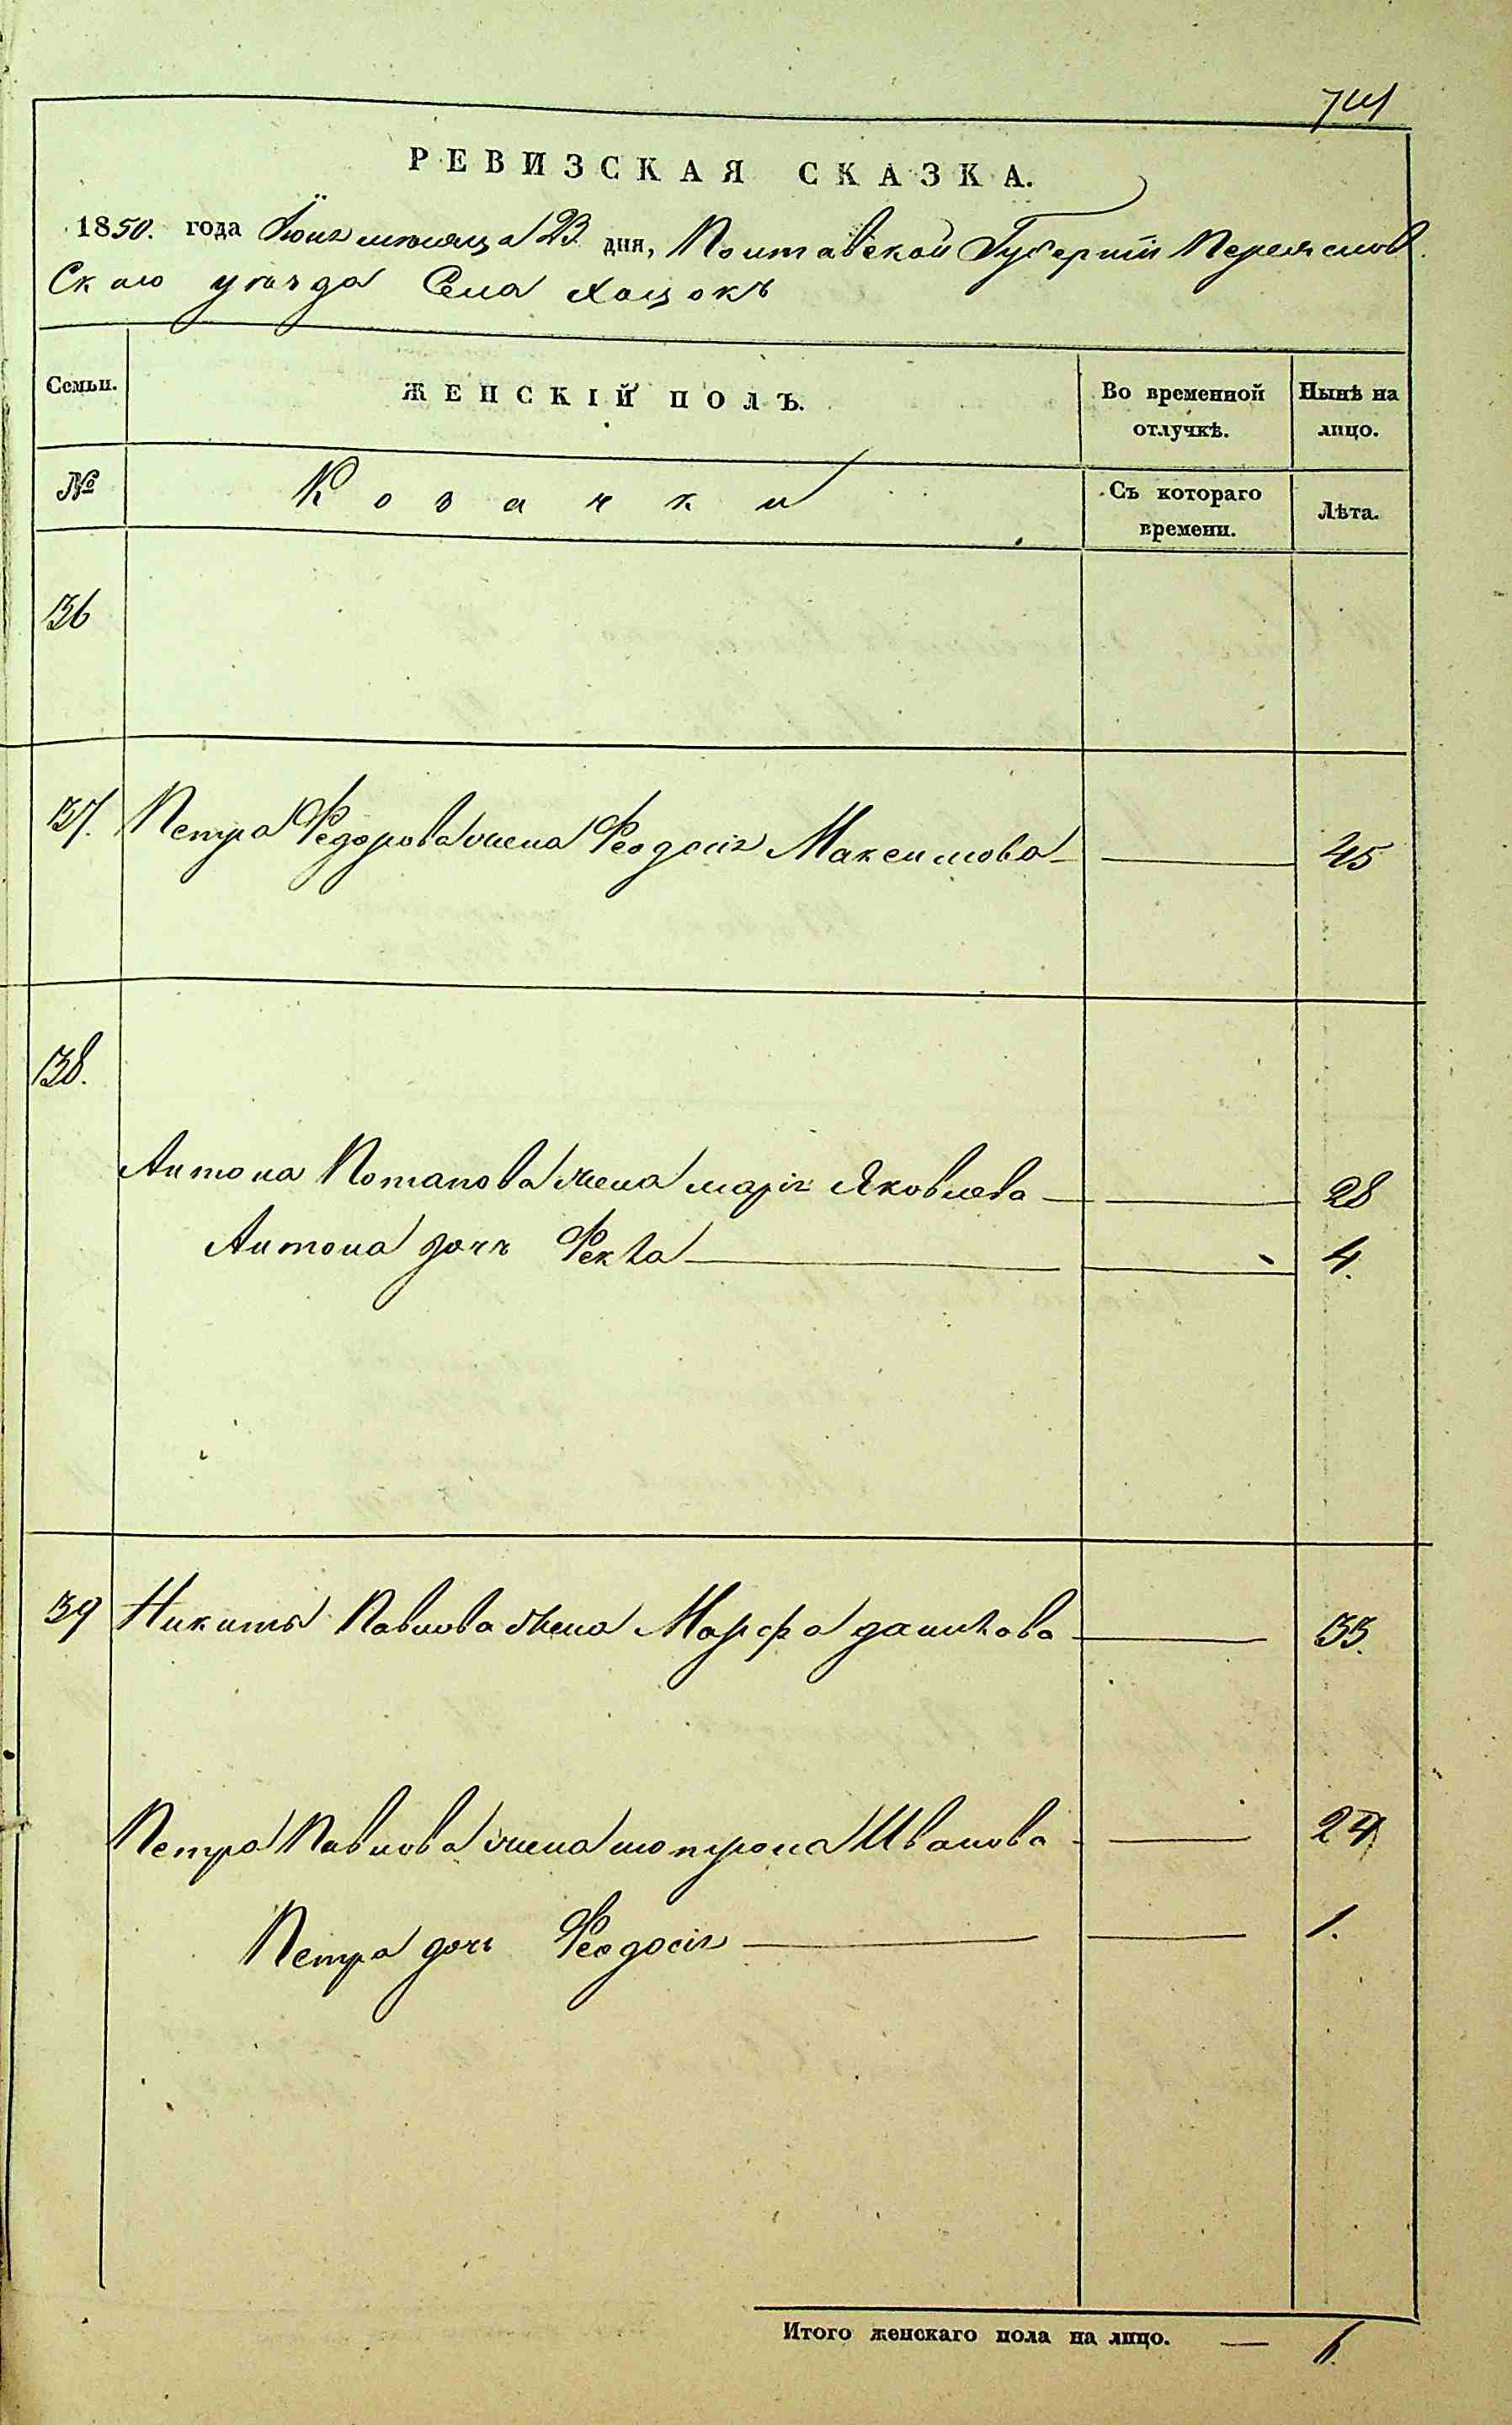 741
РЕВИЗСКАЯ СКАЗКА.
1850. года Іюня месяца 23 дня, Полтавской Губерніи Переяслов
Скаго уезда Села Хоцокъ
Семьи. ЖЕНСКІЙ ПОЛЪ. Во временной отлучкѣ. Нынѣ на лицо.
№ Козачки Съ котораго времени. Лѣта.
36
37. Петра Федорова жена Феодосія Максимова 45
38.
Антона Потапова жена марія Яковлева 28
Антона дочь Фекла 4.
39 Никиты Павлова жена Марфа данилова 33.
Петра Павлова жена мотрона Иванова 24
Петра дочь Феодосія 1.
Итого женскаго пола на лицо. — 6.